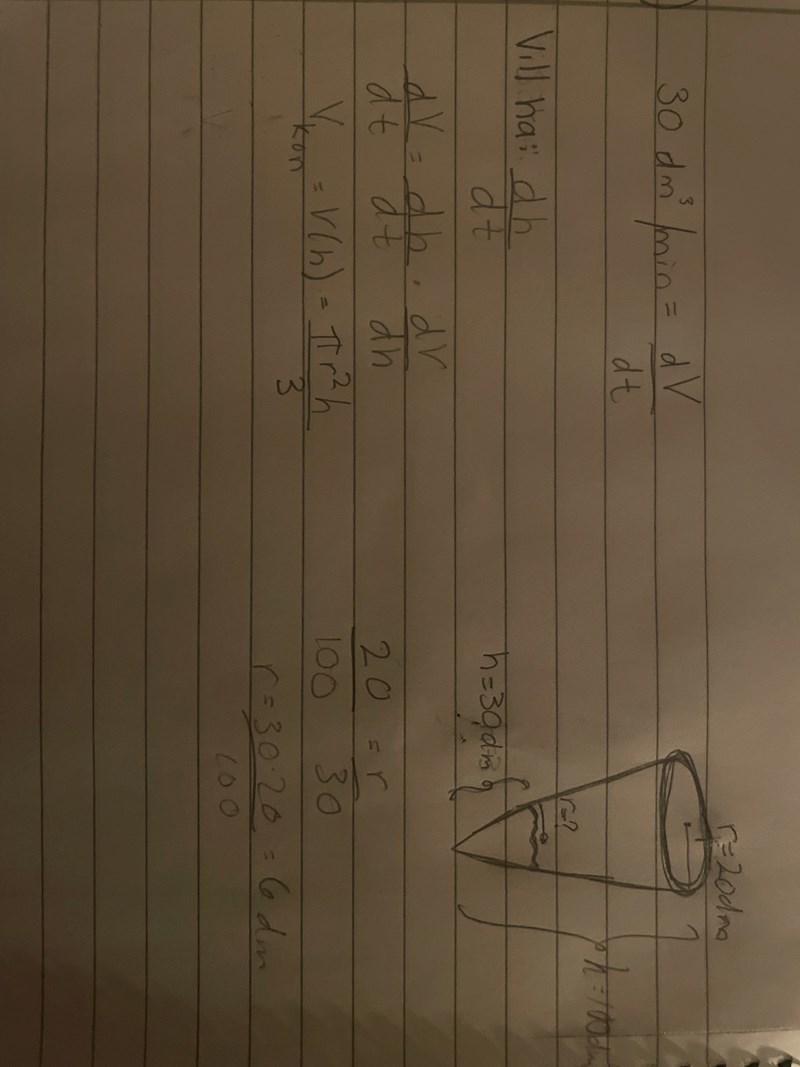 30 dm³/min = dV/dt
Vill ha: dh/dt
dV/dt = dh/dt · dV/dh
V_kon = V(h) = πr²h/3
r=20dm
h=100dm
r=?
h=30dm
20/100 = r/30
r = 30·20/100 = 6 dm